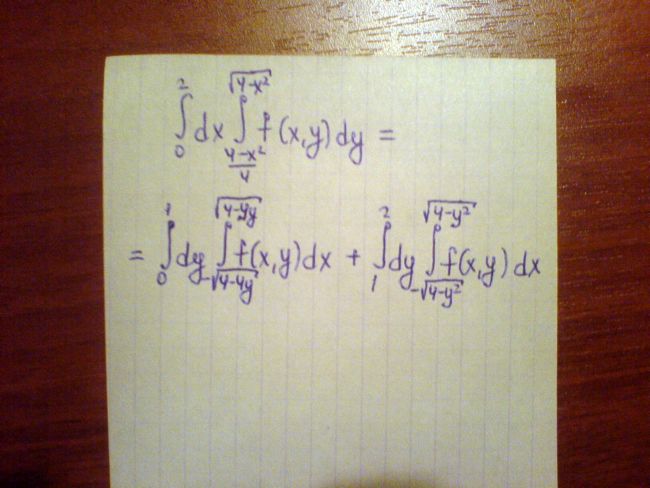 ∫₀² dx ∫_{(4-x²)/4}^{√(4-x²)} f(x,y)dy =
= ∫₀¹ dy ∫_{-√(4-4y)}^{√(4-4y)} f(x,y)dx + ∫₁² dy ∫_{-√(4-y²)}^{√(4-y²)} f(x,y)dx